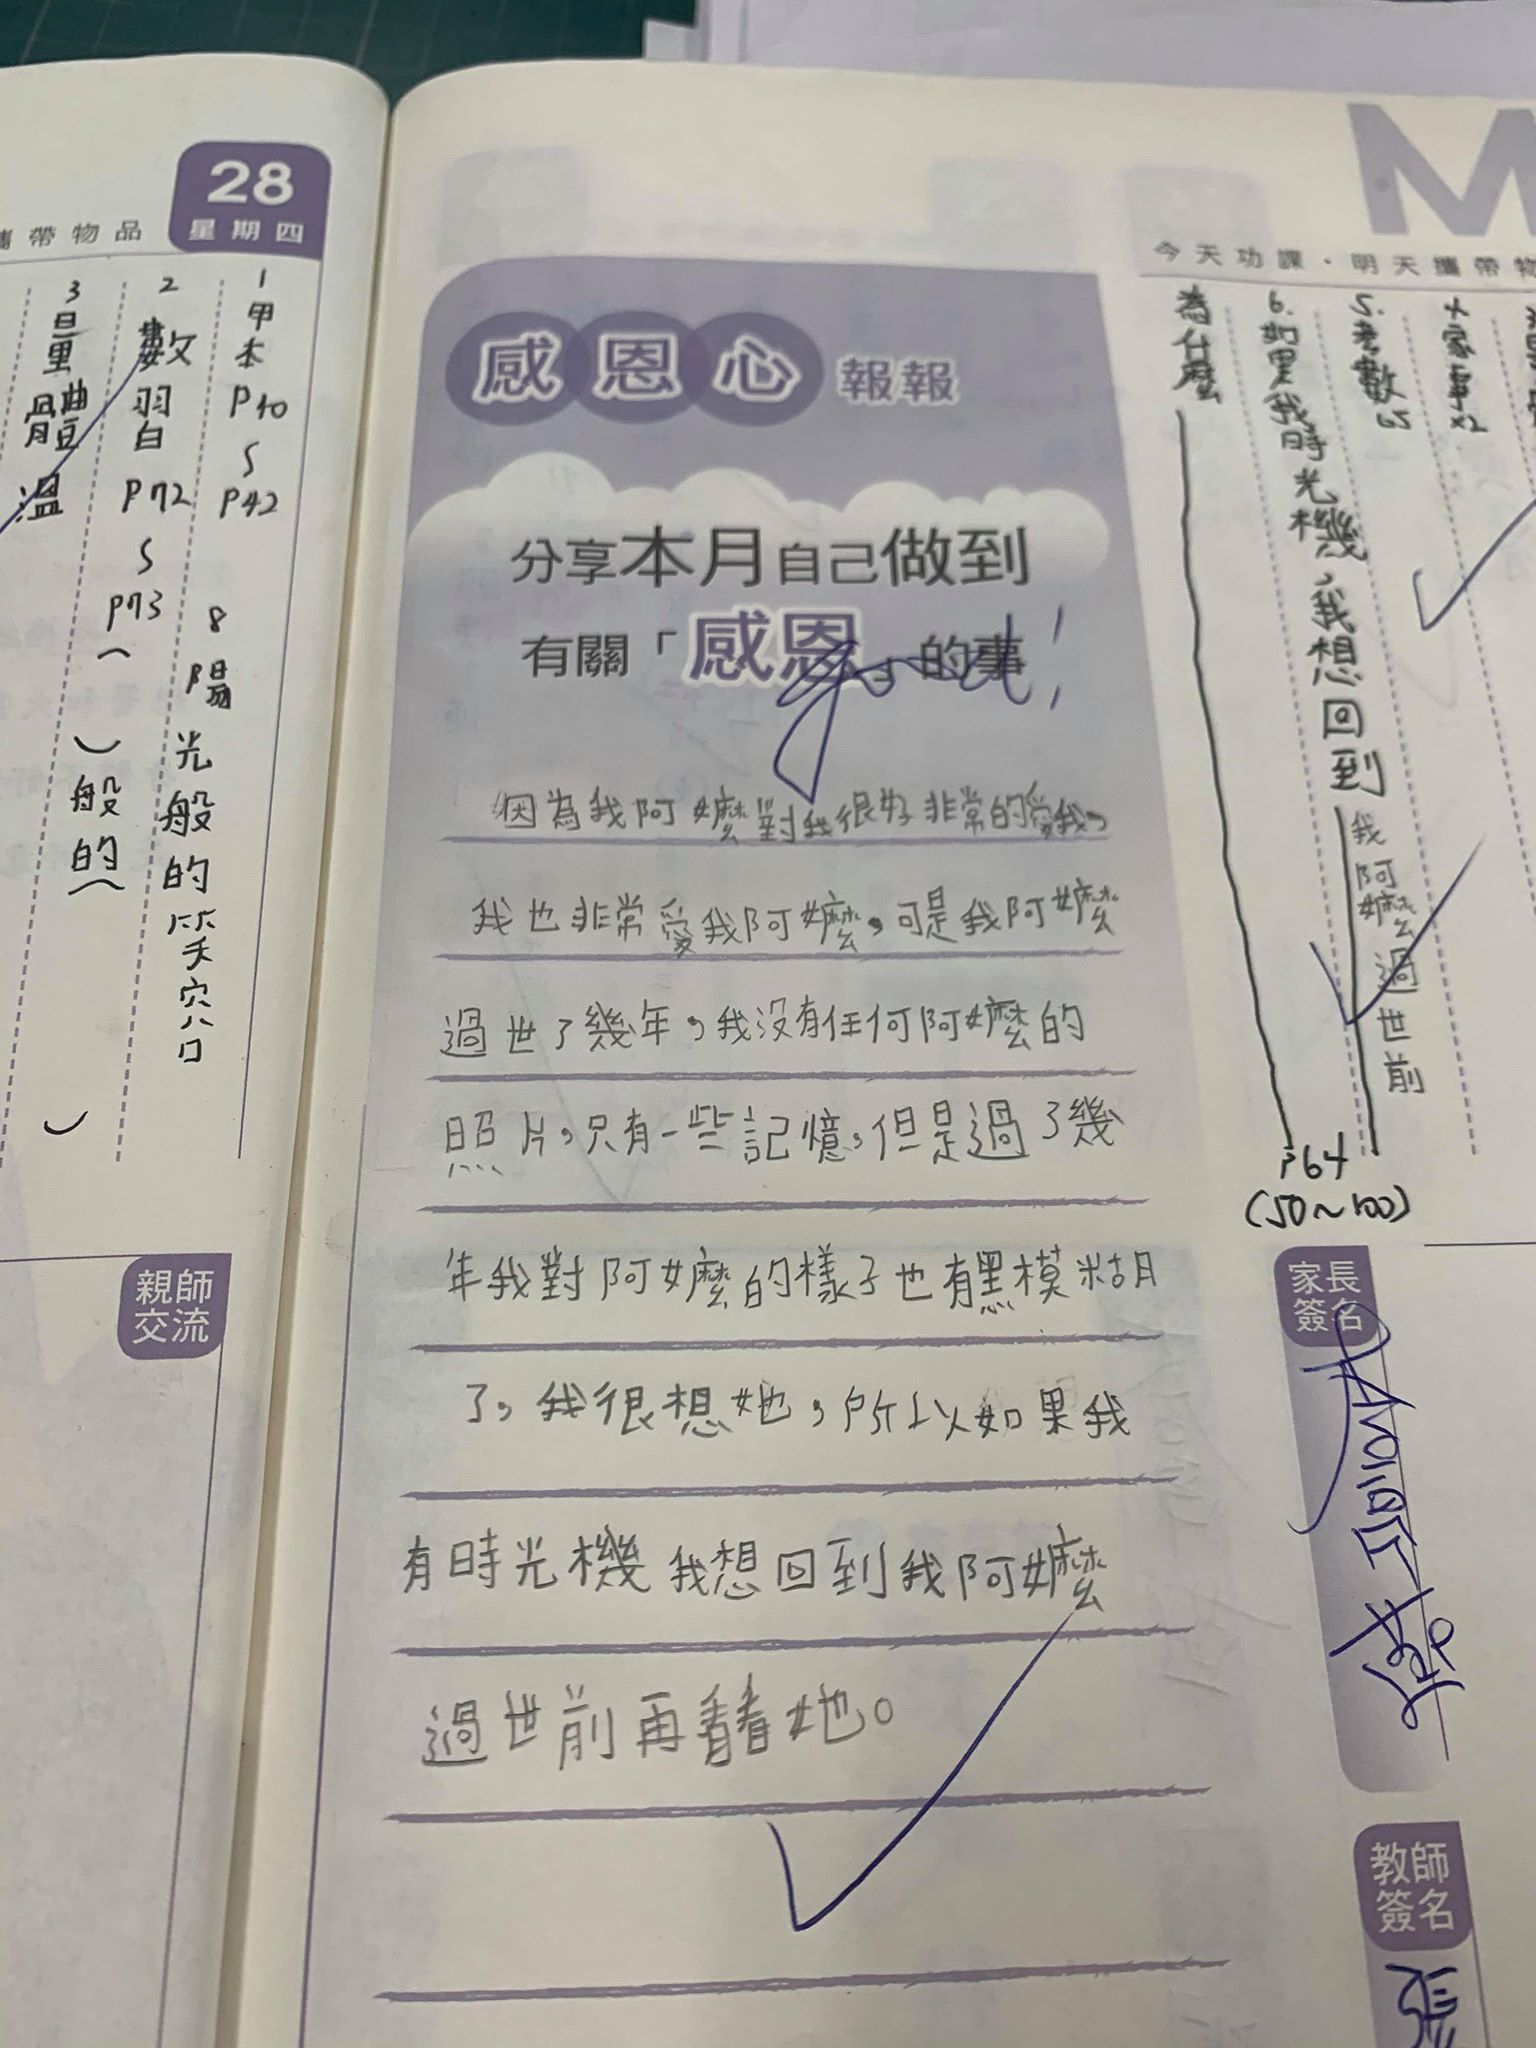 28
星期四
攜帶物品
1 甲本 P40 ~ P42
2 數習 P72 ~ P73
3 量體溫
8 陽光般的笑容
( )般的( )
親師
交流
感恩心報報
分享本月自己做到
有關「感恩」的事
good!
因為我阿嬤對我很好非常的愛我,
我也非常愛我阿嬤,可是我阿嬤
過世了幾年,我沒有任何阿嬤的
照片,只有一些記憶,但是過了幾
年我對阿嬤的樣子也有點模糊
了,我很想她,所以如果我
有時光機我想回到我阿嬤
過世前再看看她。
M
今天功課・明天攜帶物
4 家事x2
5. 考數
6. 如果我時光機,我想回到我阿嬤過世前
為什麼
P64
(50~100)
家長
簽名
教師
簽名